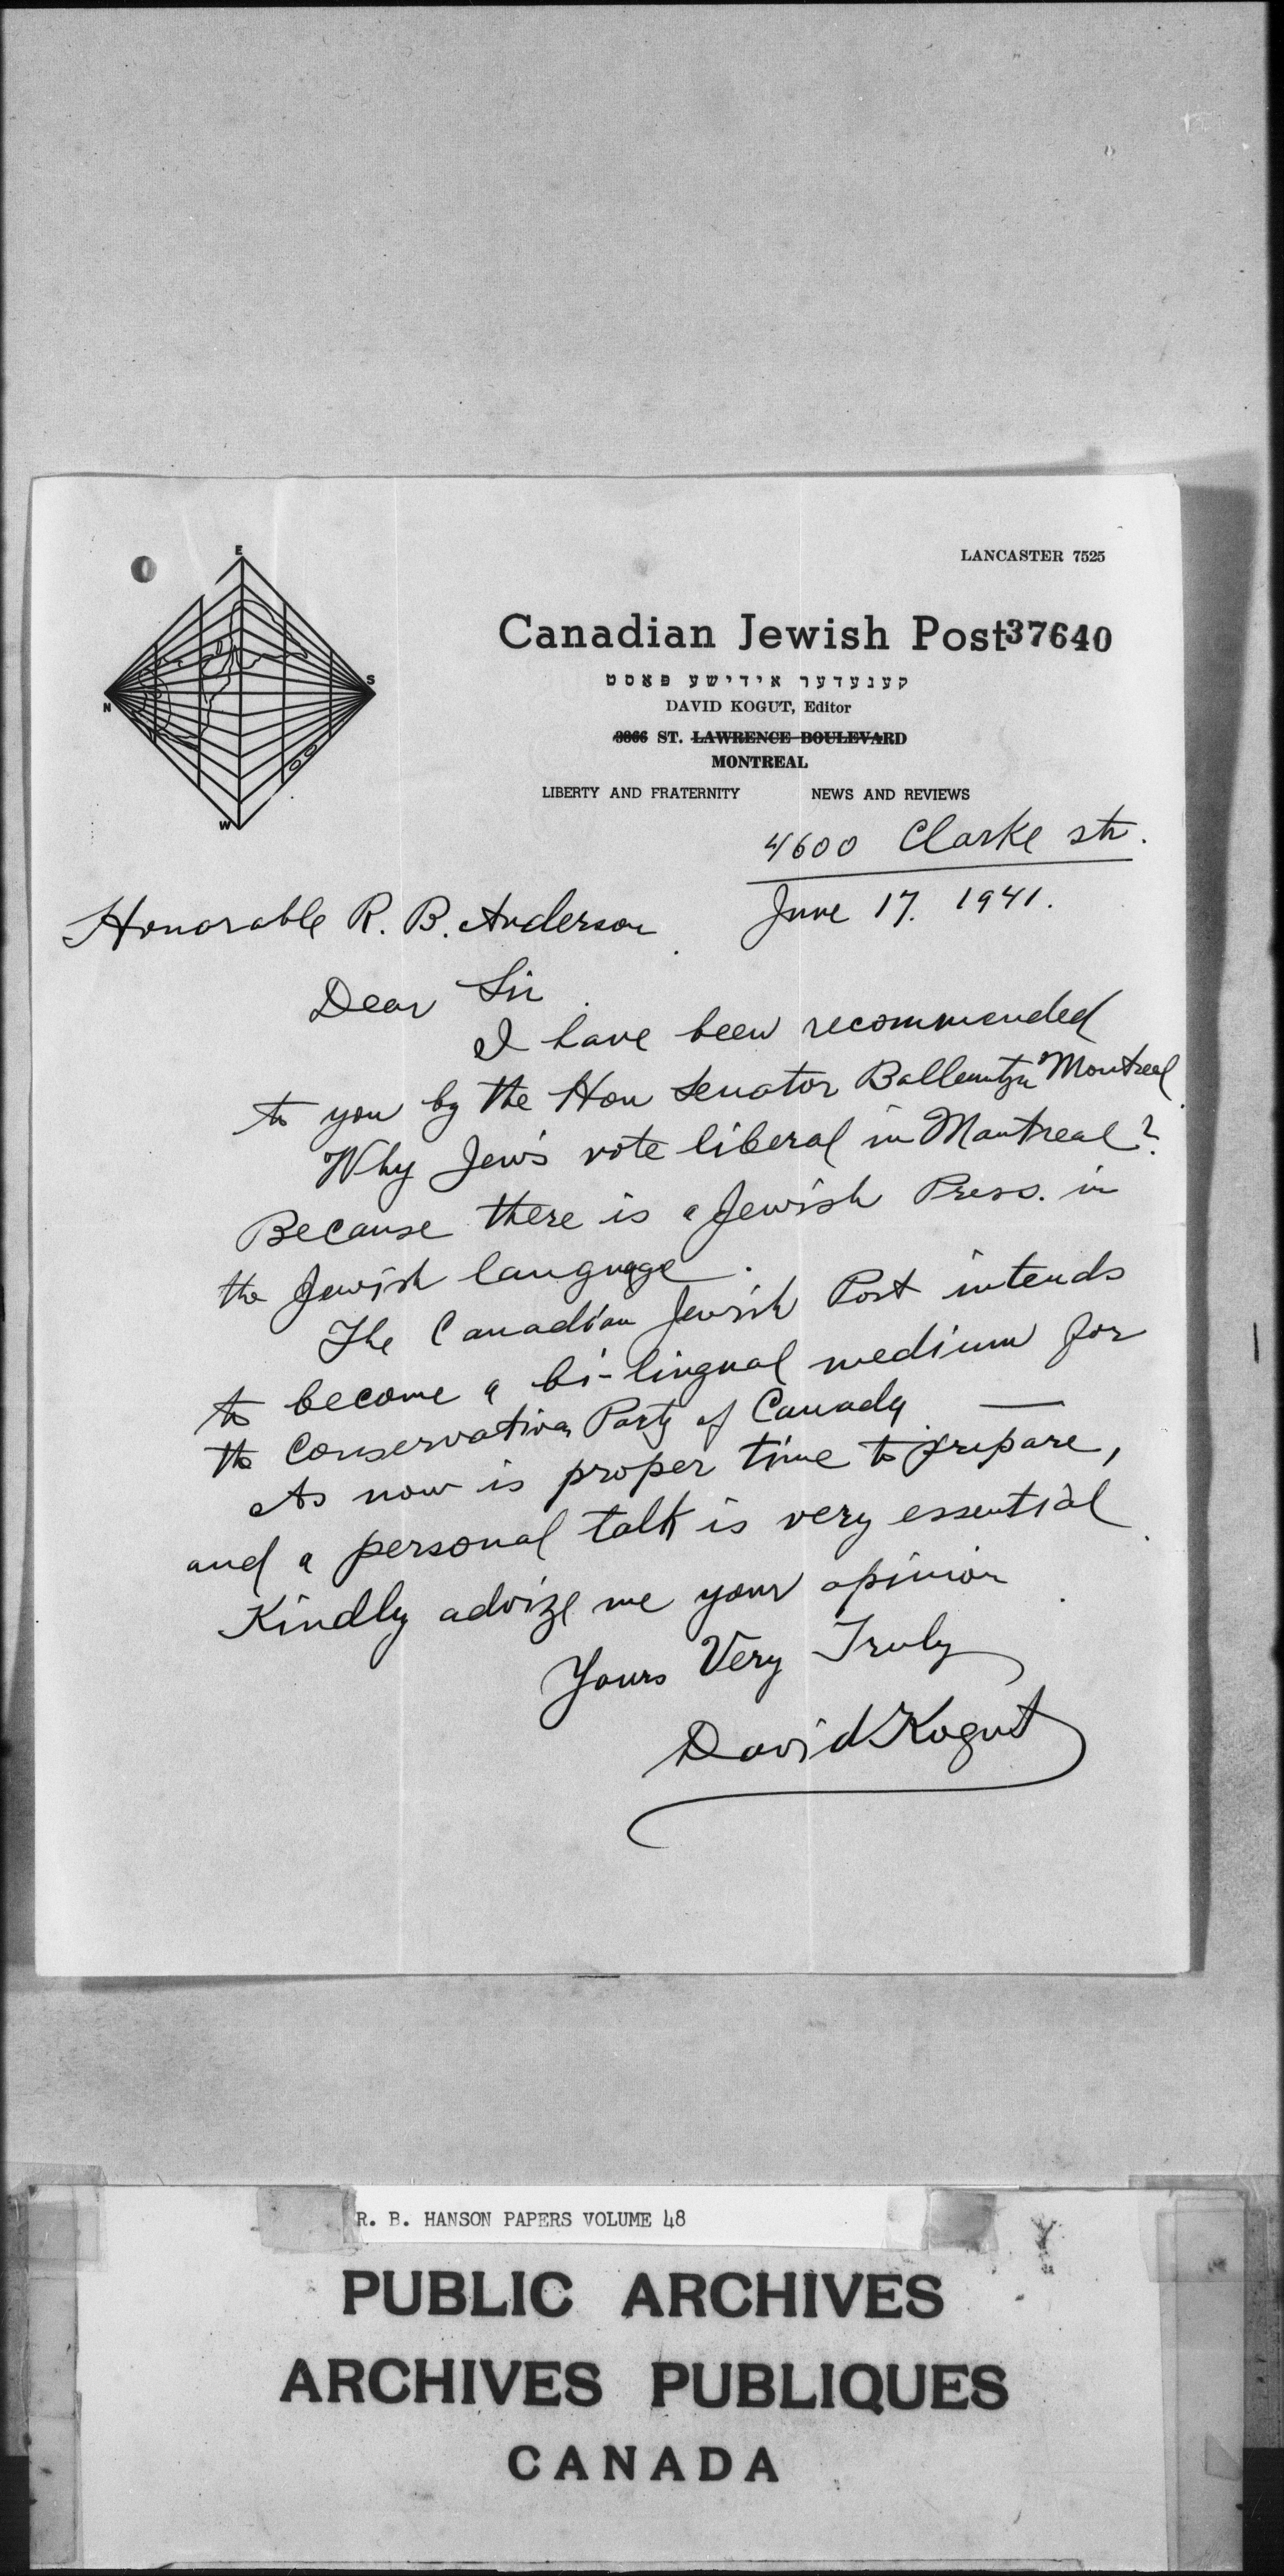 LANCASTER 7525
E
N
S
W
Canadian Jewish Post 37640
קענעדער אידישע פאסט
DAVID KOGUT, Editor
3866 ST. LAWRENCE BOULEVARD
MONTREAL
LIBERTY AND FRATERNITY NEWS AND REVIEWS
4600 Clarke str.
June 17. 1941.
Honorable R. B. Anderson
Dear Sir
I have been recommended
to you by the Hon Senator Montreal
Why Jews vote liberal in Montreal?
Because there is a Jewish Press. in
the Jewish language.
The Canadian Jewish Post intends
to become a bi-lingual medium for
the Conservative Party of Canada. —
As now is proper time to prepare,
and a personal talk is very essential.
Kindly advize me your opinion.
Yours Very Truly
David Kogut
R. B. HANSON PAPERS VOLUME 48
PUBLIC ARCHIVES
ARCHIVES PUBLIQUES
CANADA